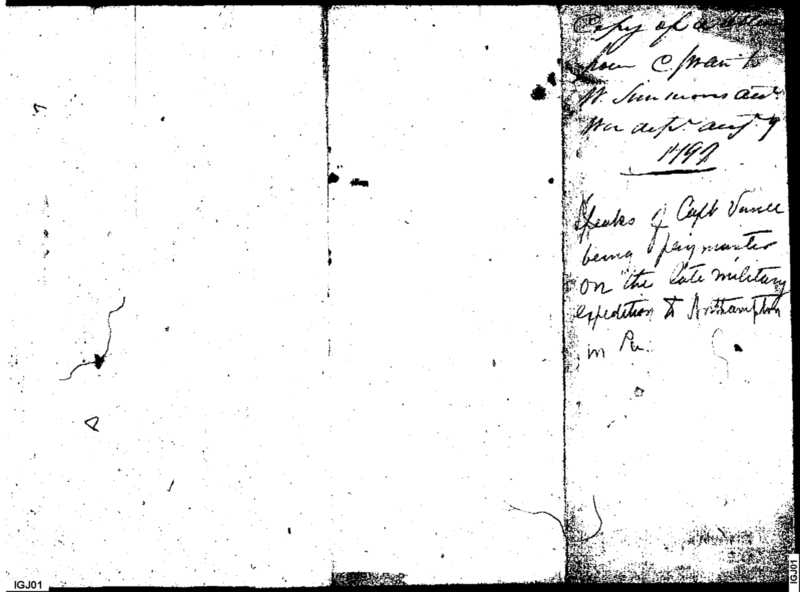 Copy of a letter
from C Swan to
W. Simmons acct.
War dept. augt. 9
1799
Speaks of Capt Vance
being paymaster
on the late military
expedition to Northampton
in Pa.
IGJ01
IGJ01